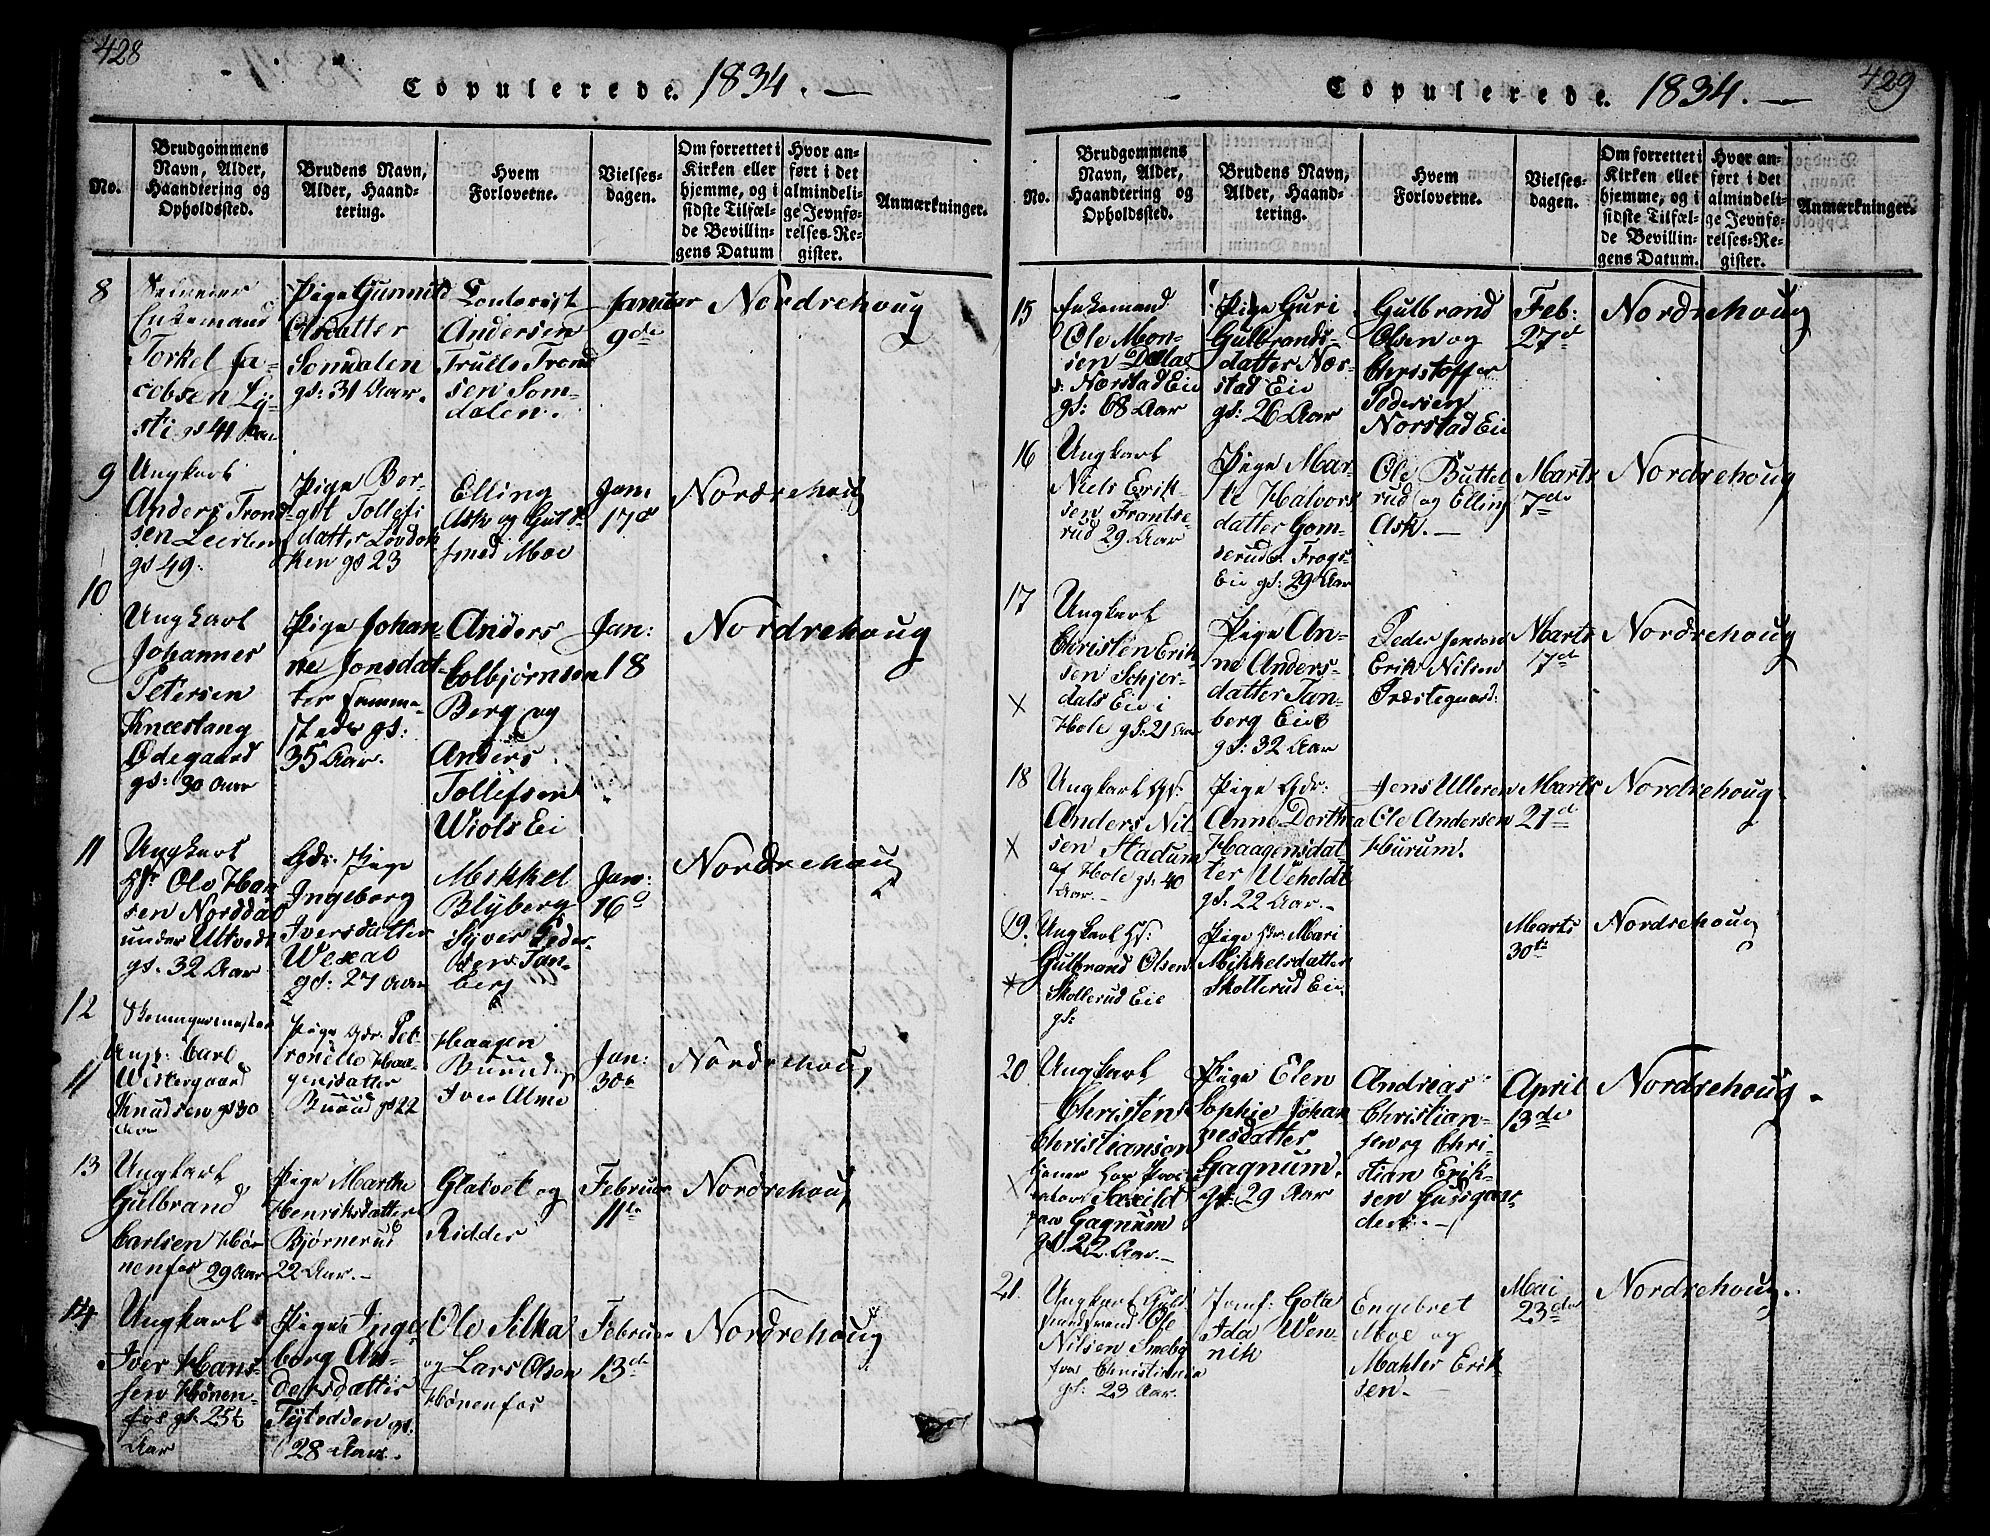 428
Copulerede. 1834.
No.
Brudgommens
Navn, Alder,
Haandtering og
Opholdssted.
Brudens Navn,
Alder, Haand-
tering.
Hvem
Forloverne.
Vielses-
dagen.
Om forrettet i
Kirken eller
hjemme, og i
sidste Tilfæl-
de Bevillin-
gens Datum
Hvor an-
ført i det
almindeli-
ge Jevnfø-
relses-Re-
gister.
Anmærkninger.
8
Enkemand
Torkel Ja-
cobsen Ly-
sti gs 41 Aar
Pige Gunnild
Olsdatter
Somdalen
gs: 31 Aar.
Andersen
Trulls Trond
sen Som-
dalen.
Januar
9de
Nordrehoug
9
Ungkarl
Anders Trond-
sen
gs 49.
Pige Ber-
git Tollefs
datter Lovdok
ken gs 23
Elling
Ask og Guld
smed Moe
Jan:
17d
Nordrehoug
10
Ungkarl
Johannes
Petersen
Knæstang
Ødegaard
gs: 30 Aar
Pige Johan-
ne Jonsdat-
ter samme-
steds gs:
35 Aar.
Anders
Colbjørnsen
Berg og
Anders
Tollefsen
Wiols Ei
Jan:
18
Nordrehoug
11
Ungkarl
Ole Han
sen Norddal
under Ultvedt
gs. 32 Aar
Gdr. Pige
Ingeborg
Iversdatter
Wexal
gs: 27 Aar
Mikkel
Blyberg
Syver Peder-
sen Tan-
berg
Jan:
16
Nordrehoug
12
Ungk: Carl
Westergaard
Knudsen gs 30
Aar
Pige Gdr. Pet-
ronelle Haa-
gensdatter
Buru gs 22
Haagen
Buru og
Iver Alme
Jan:
30te
Nordrehoug
13
Ungkarl
Gulbrand
Carlsen Høn-
nenfos 29 Aar
Pige Marthe
Henriksdatter
Bjørnerud
22 Aar.
Glatvet og
Ridder
Februar
11te
Nordrehoug
14
Ungkarl
Iver Hans-
sen Hønen-
fos gs. 25
Aar
Pige Inge
borg An-
dersdatter
Tytedden gs:
28 Aar.
Ole Silka
og Lars Olsen
Hønenfos
Februar
13de
Nordrehoug
429
Copulerede. 1834.
No.
Brudgommens
Navn, Alder,
Haandtering og
Opholdssted.
Brudens Navn,
Alder, Haand-
tering.
Hvem
Forloverne.
Vielses-
dagen.
Om forrettet i
Kirken eller
hjemme, og i
sidste Tilfæl-
de Bevillin-
gens Datum.
Hvor an-
ført i det
almindeli-
ge Jevnfø-
relses-Re-
gister.
Anmærkninger.
15
Enkemand
Ole Mon-
sen Dælas
s: Norstad Eie
gs: 68 Aar
Pige Guri
Gulbrands-
datter Nor-
stad Eie
gs: 26 Aar
Gulbrand
Olsen og
Christoffer
Pedersen
Norstad Eie
Feb:
27d
Nordrehoug
16
Ungkarl
Niels Erik-
sen Frantse-
rud 29 Aar
Pige Mar-
te Halvors
datter Gom-
serud Frogs-
Eie gs: 29 Aar
Ole Buttel
rud og Elling
Ask.
Marts
7de
Nordrehoug
17
Ungkarl
Christen Erik-
sen Schjer-
dals Eie i
Hole gs: 21 Aar
Pige An-
ne Anders-
datter Tan-
berg Eie
gs: 32 Aar
Peder Jensen
Erik Nilsen
Præstegaard:
Marts
17de
Nordrehoug
18
Ungkarl Gs:
Anders Nil-
sen Stadum
af Hole gs: 40
Aar.
Pige Gdr:
Anne Dorthea
Haagensdat-
ter Weholdt
gs. 22 Aar.
Jens Ulleren
Ole Andersen
Hurum.
Marts
21d
Nordrehoug
19.
Ungkarl Gs:
Gulbrand Olsen
Skollerud Eie
gs:
Pige Mari
Mikkelsdatter
Skollerud Eie
Marts
30te
Nordrehoug
20
Ungkarl
Christen
Christiansen
tjener hos
Saxild
paa Gagnum
gs. 22 Aar.
Pige Elen
Sophie Johan-
nesdatter
Gagnum.
gs: 29 Aar
Andreas
Christian-
sen og Chri-
stian Erik-
sen
April
13de
Nordrehoug
21.
Ungkarl
Ole
Nilsen Smeby
fra Christiania
gs: 23 Aar.
Jomf: Gola
Ida Wen-
nik
Engebret
Moe og
Mahler Erik
sen.
Mai
23de
Nordrehoug